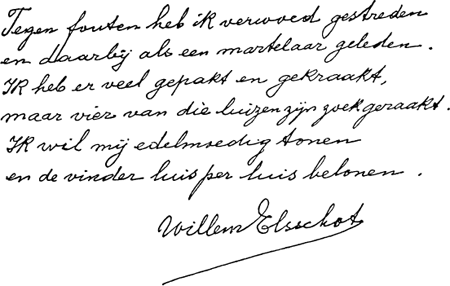 Tegen fouten heb ik verwoed gestreden
en daarbij als een martelaar geleden.
Ik heb er veel gepakt en gekraakt,
maar vier van die luizen zijn zoek geraakt.
Ik wil mij edelmoedig tonen
en de vinder luis per luis belonen.
Willem Elsschot